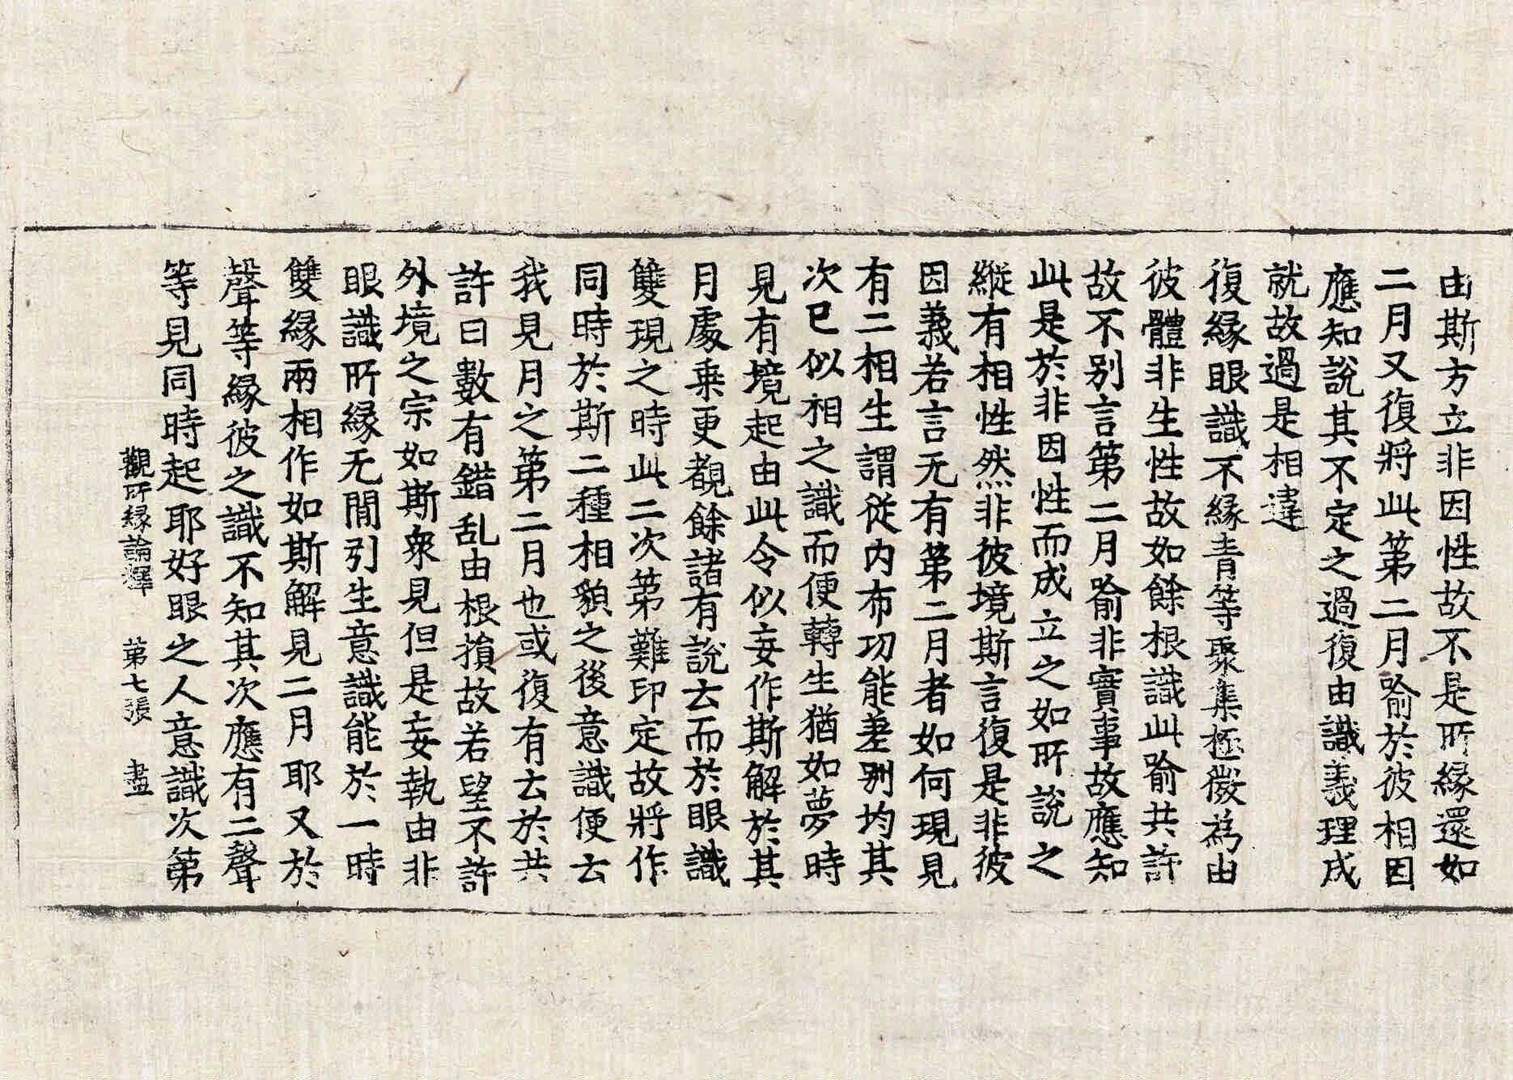 由斯方立非因性故不是所縁還如
二月又復將此第二月喻於彼相因
應知說其不定之過復由識義理成
就故過是相違
復縁眼識不縁青等聚集極微為由
彼體非生性故如餘根識此喻共許
故不别言第二月喻非實事故應知
此是於非因性而成立之如所說之
縱有相性然非彼境斯言復是非彼
因義若言无有第二月者如何現見
有二相生謂從内布功能差别均其
次已似相之識而便轉生猶如夢時
見有境起由此令似妄作斯解於其
月處乗更覩餘諸有說去而於眼識
雙現之時此二次第難印定故將作
同時於斯二種相貌之後意識便云
我見月之第二月也或復有去於共
許曰數有錯乱由根損故若望不許
外境之宗如斯衆見但是妄執由非
眼識所縁无間引生意識能於一時
雙縁兩相作如斯解見二月耶又於
聲等縁彼之識不知其次應有二聲
等見同時起耶好眼之人意識次第
觀所縁論釋　第七張　盡